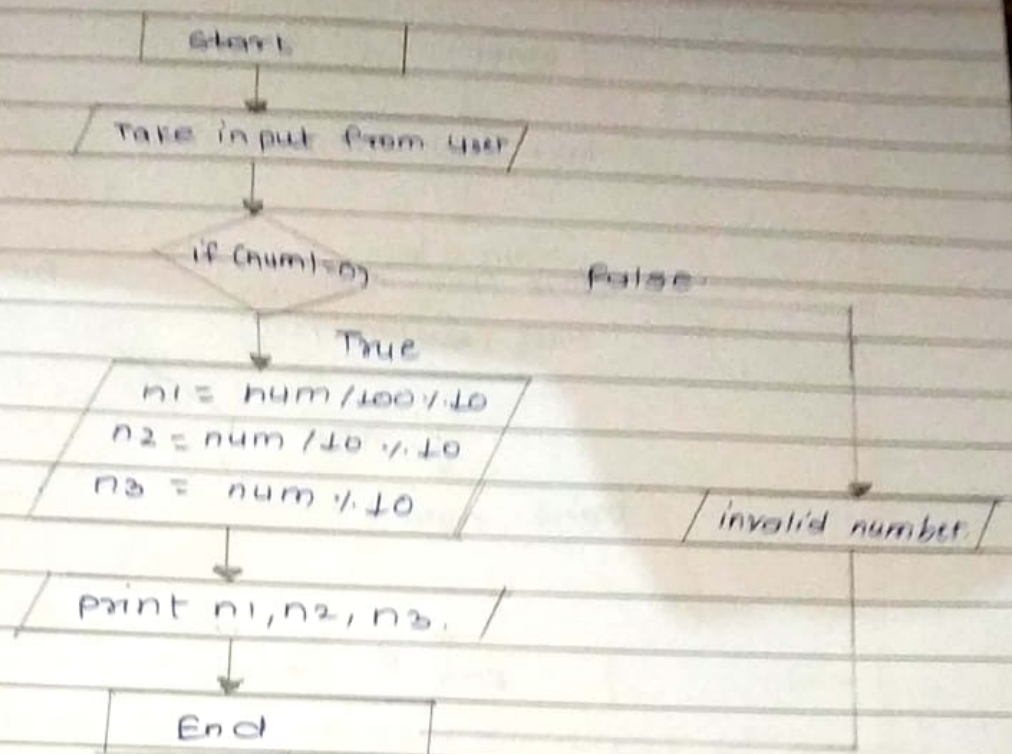 Start
Take input from user
if (num!=n)
False
True
n1 = num /100 % 10
n2 = num /10 % 10
n3 = num % 10
invalid number
print n1, n2, n3.
End